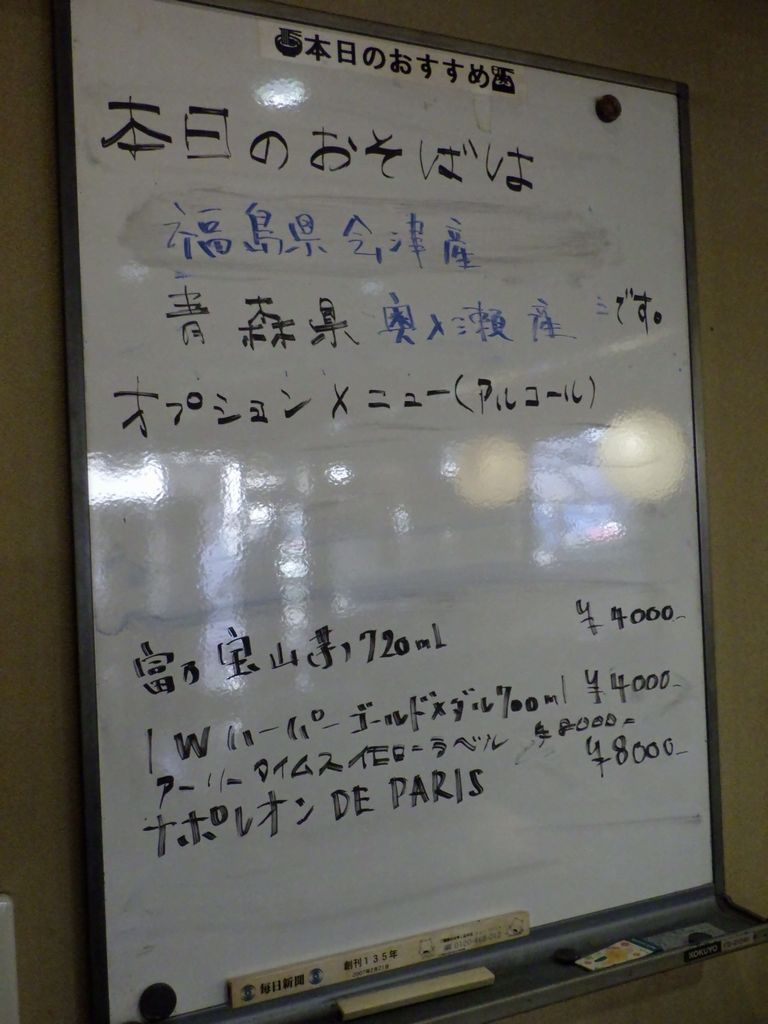 本日のおすすめ
本日のおそばは
福島県会津産
青森県奥入瀬産です。
オプションメニュー(アルコール)
富乃宝山(芋)720ml ¥4000-
IWハーパーゴールドメダル700ml ¥4000-
アーリータイムスイエローラベル ¥8000-
ナポレオン DE PARIS ¥8000-
毎日新聞 創刊135年
2007年2月21日
KOKUYO